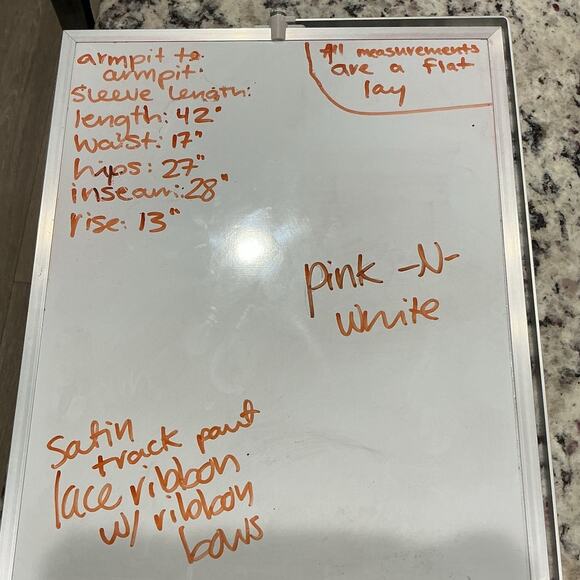 armpit to
armpit:
sleeve length:
length: 42"
waist: 17"
hips: 27"
inseam: 28"
rise: 13"
All measurements
are a flat
lay
pink -N-
white
satin
track pant
lace ribbon
w/ ribbon
bows